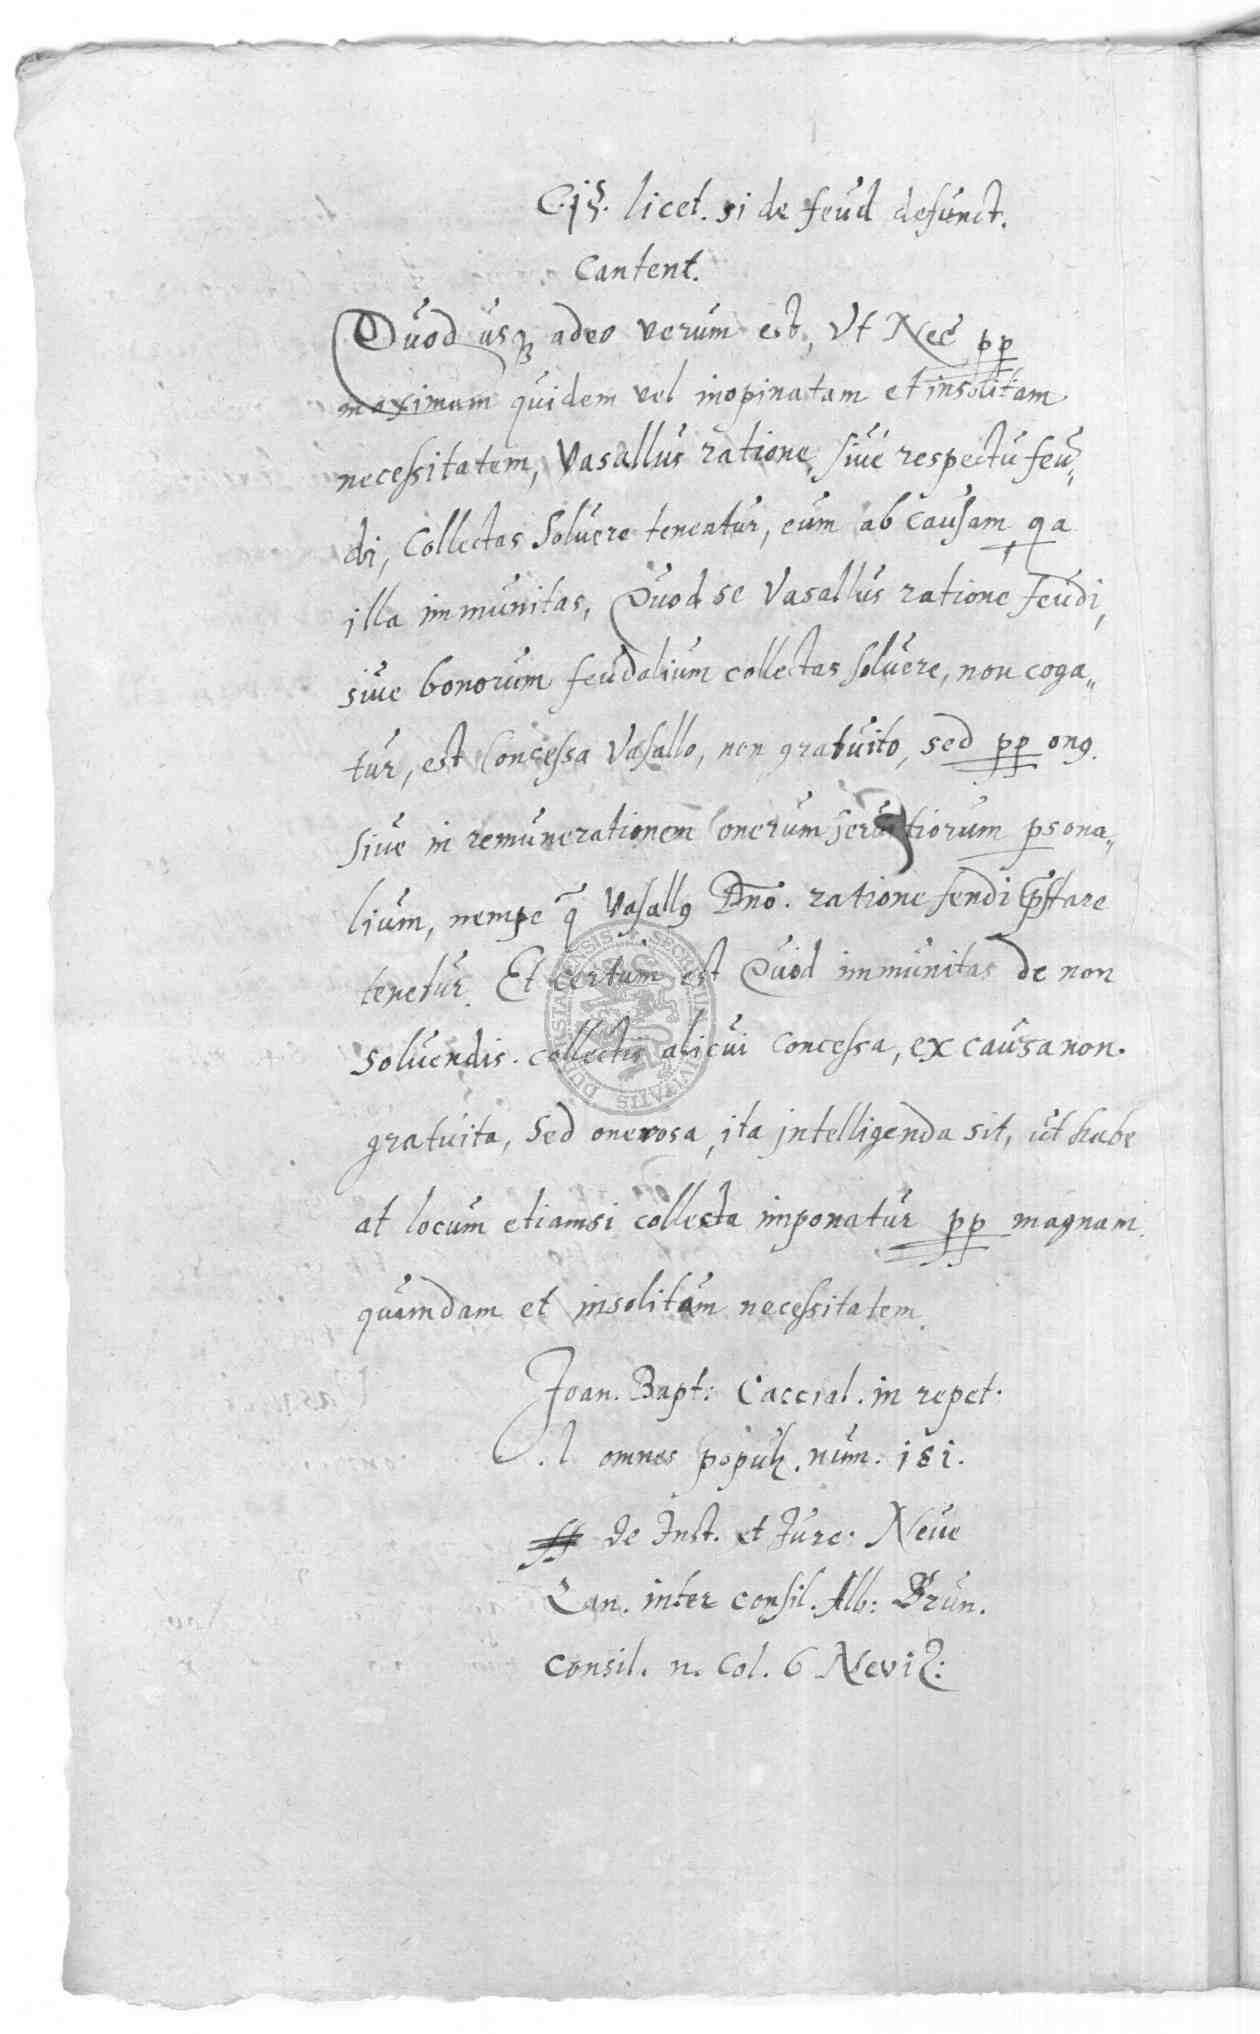 C. i §. licet. si de feud defunct.
Cantent.
Quod usq adeo verum est, Ut Nec pp
maximam quidem vel inopinatam et insolitam
necessitatem, Vasallus ratione, sive respectu feu„
di, Collectas Solvere teneatur, cum ab causam qa
illa immunitas, Quod se Vasallus ratione feudi,
sive bonorum feudalium collectas solvere, non coga„
tur, est Concessa Vasallo, non gratuito, sed pp ong.
sive in remunerationem onerum servitiorum psona„
lium, nempe q Vasallg Dno. ratione feudi pstare
tenetur. Et certum est Quod immunitas de non
solvendis. collectis alicui concessa, ex causa non.
gratuita, Sed onerosa, ita intelligenda sit, ut habe
at locum etiamsi collecta imponatur pp magnam
quamdam et insolitam necessitatem.
Joan. Bapt: Caccial. in repet.
.l omnes populi. num. 181.
ff de Just. et Jure. Neve
Can. inter consil. Alb: Brun.
Consil. n. Col. 6 Neviz: